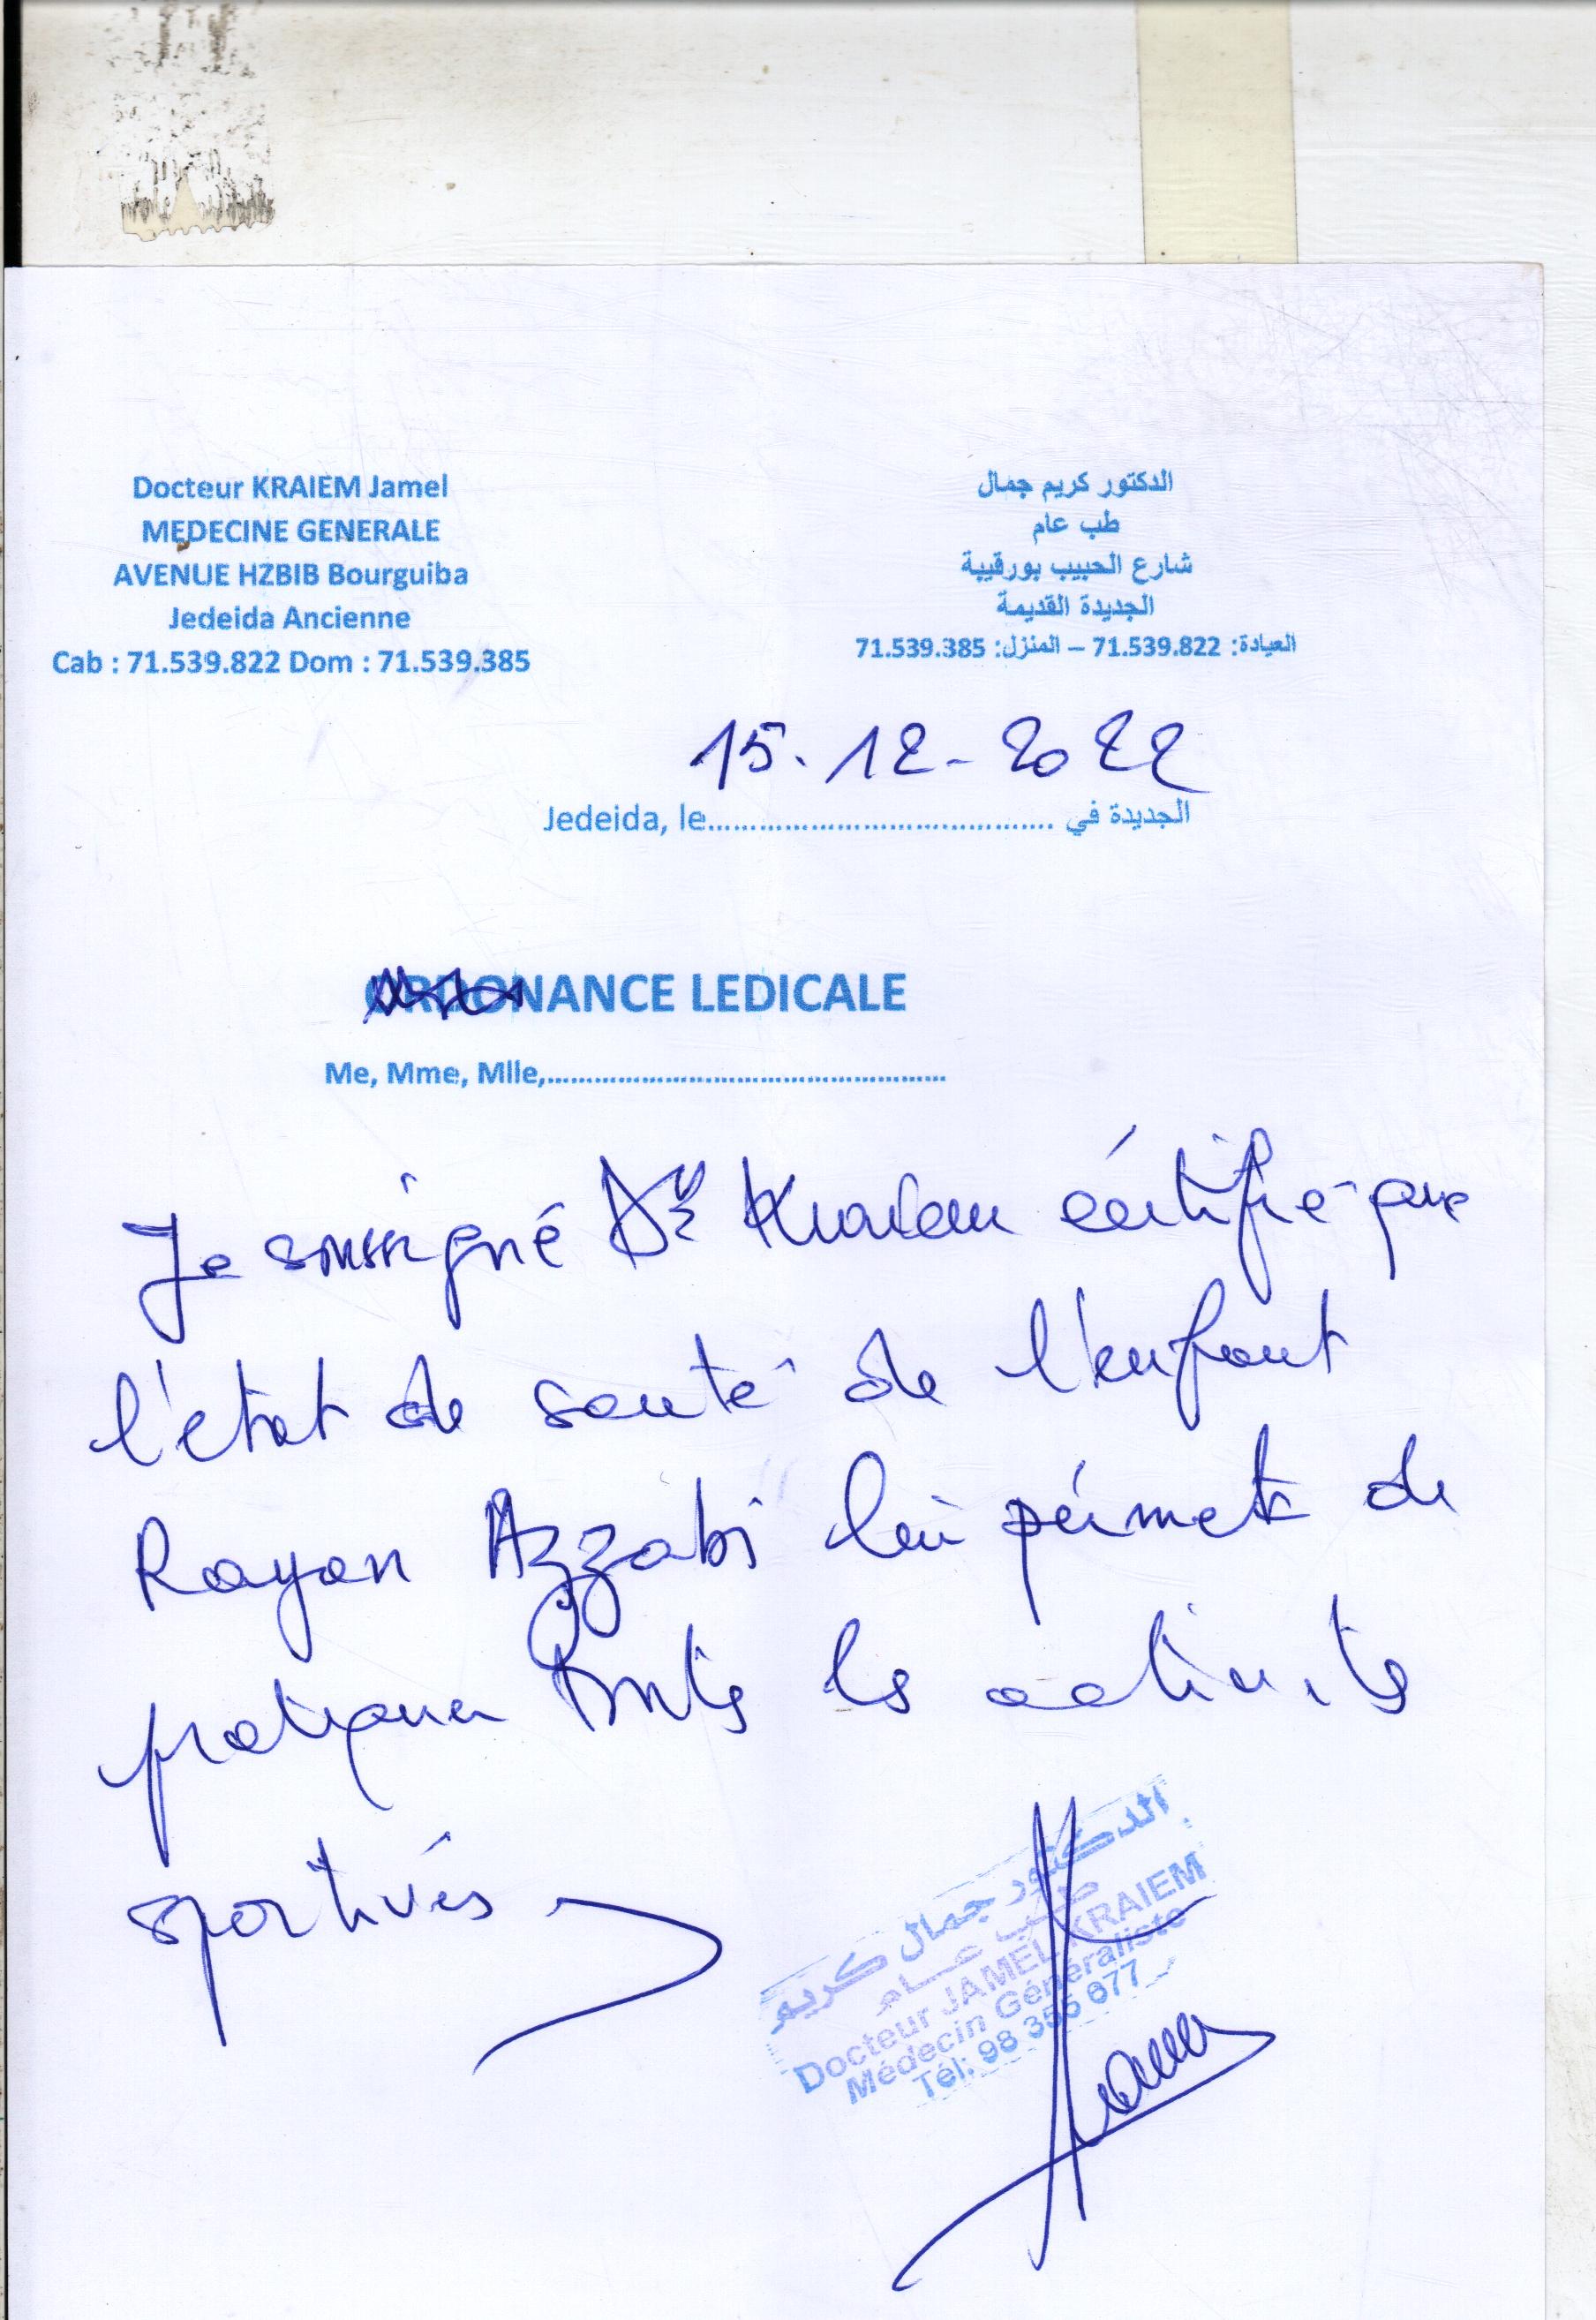 Docteur KRAIEM Jamel
MEDECINE GENERALE
AVENUE HZBIB Bourguiba
Jedeida Ancienne
Cab : 71.539.822 Dom : 71.539.385
الدكتور كريم جمال
طب عام
شارع الحبيب بورقيبة
الجديدة القديمة
العيادة: 71.539.822 – المنزل: 71.539.385
15.12-2022
Jedeida, le........................................ الجديدة في
ORDONANCE LEDICALE
Me, Mme, Mlle,..................................................
Je soussigné Dr Kraiem certifie que
l'état de santé de l'enfant
Rayan Azzabi lui permet de
pratiquer toutes les activités
sportives
الدكتور جمال كريم
طب عام
Docteur JAMEL KRAIEM
Médecin Généraliste
Tél: 98 355 677